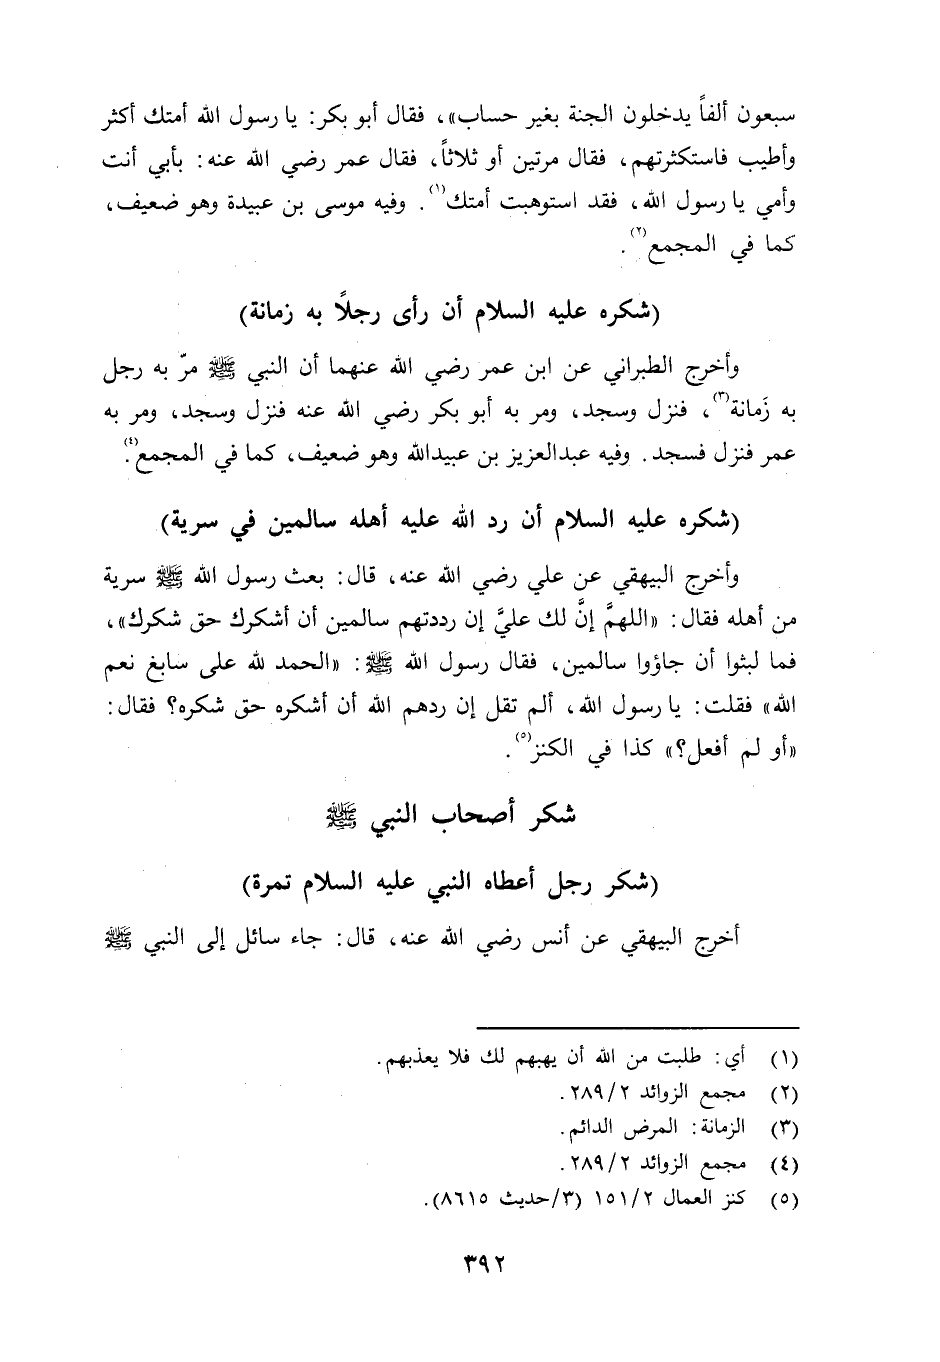 سبعون ألفاً يدخلون الجنة بغير حساب»، فقال أبو بكر: يا رسول الله أمتك أكثر
وأطيب فاستكثرتهم، فقال مرتين أو ثلاثاً، فقال عمر رضي الله عنه: بأبي أنت
وأمي يا رسول الله، فقد استوهبت أمتك(١). وفيه موسى بن عبيدة وهو ضعيف،
كما في المجمع(٢).
(شكره عليه السلام أن رأى رجلاً به زمانة)
وأخرج الطبراني عن ابن عمر رضي الله عنهما أن النبي ﷺ مرّ به رجل
به زَمانة(٣)، فنزل وسجد، ومر به أبو بكر رضي الله عنه فنزل وسجد، ومر به
عمر فنزل فسجد. وفيه عبدالعزيز بن عبيدالله وهو ضعيف، كما في المجمع(٤).
(شكره عليه السلام أن رد الله عليه أهله سالمين في سرية)
وأخرج البيهقي عن علي رضي الله عنه، قال: بعث رسول الله ﷺ سرية
من أهله فقال: «اللهمَّ إنَّ لك عليَّ إن رددتهم سالمين أن أشكرك حق شكرك»،
فما لبثوا أن جاؤوا سالمين، فقال رسول الله ﷺ: «الحمد لله على سابغ نعم
الله» فقلت: يا رسول الله، ألم تقل إن ردهم الله أن أشكره حق شكره؟ فقال:
«أو لم أفعل؟» كذا في الكنز(٥).
شكر أصحاب النبي ﷺ
(شكر رجل أعطاه النبي عليه السلام تمرة)
أخرج البيهقي عن أنس رضي الله عنه، قال: جاء سائل إلى النبي ﷺ
(١) أي: طلبت من الله أن يهبهم لك فلا يعذبهم.
(٢) مجمع الزوائد ٢/٢٨٩.
(٣) الزمانة: المرض الدائم.
(٤) مجمع الزوائد ٢/٢٨٩.
(٥) كنز العمال ٢/١٥١ (٣/حديث ٨٦١٥).
٣٩٢